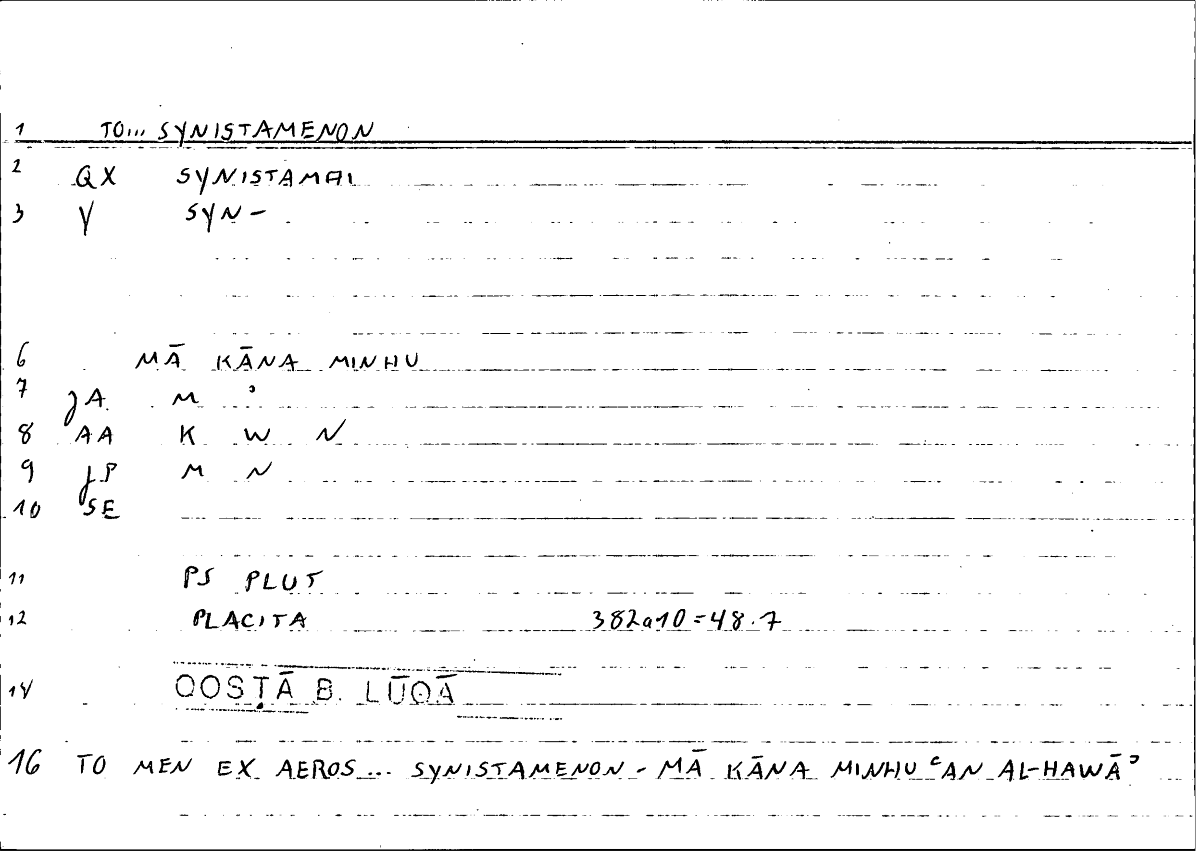 1 TO... SYNISTAMENON
2 QX SYNISTAMAI
3 V SYN-
6 MĀ KĀNA MINHU
7 JA. M ʾ
8 AA K W N
9 JP M N
10 SE
11 PS PLUT
12 PLACITA 382a10=48.7
14 QOSṬĀ B. LŪQĀ
16 TO MEN EX AEROS... SYNISTAMENON - MĀ KĀNA MINHU ʿAN AL-HAWĀʾ